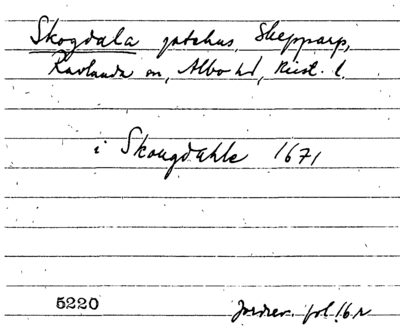 Skogdala gatehus, Shepparp,
Ravlunda sn, Albo hd, Krist. l.
i Skougdahle 1671
5220
Jordrev. fol. 16 r